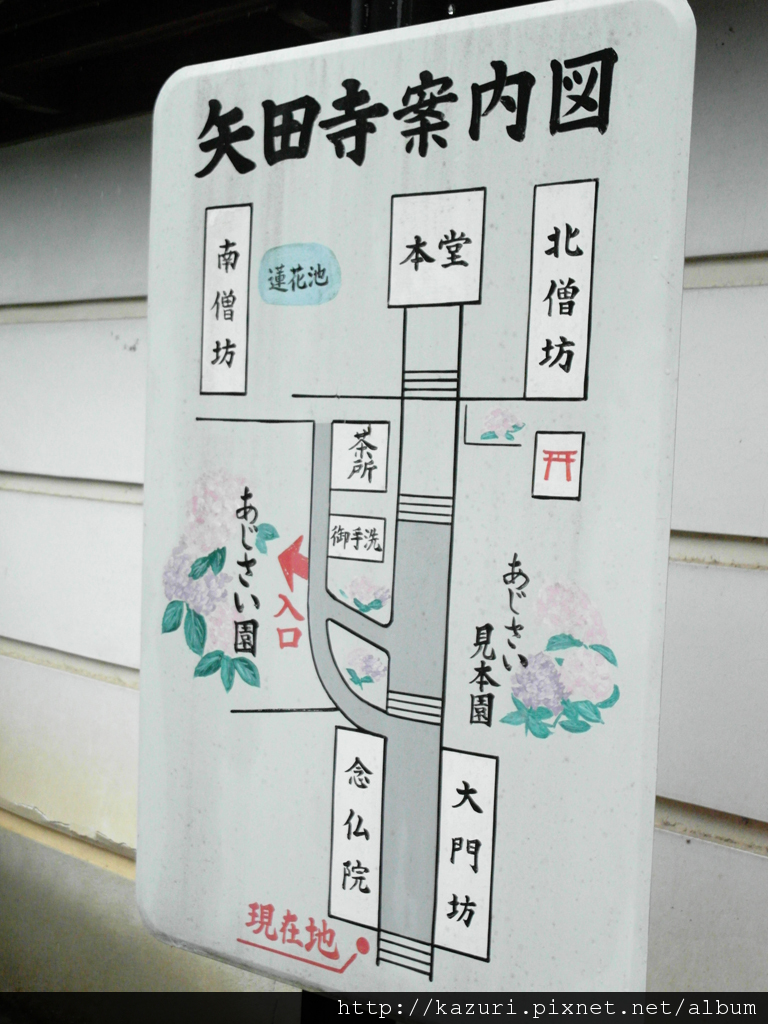 矢田寺案内図
南僧坊
蓮花池
本堂
北僧坊
茶所
御手洗
あじさい園
入口
あじさい
見本園
念仏院
大門坊
現在地
http://kazuri.pixnet.net/album